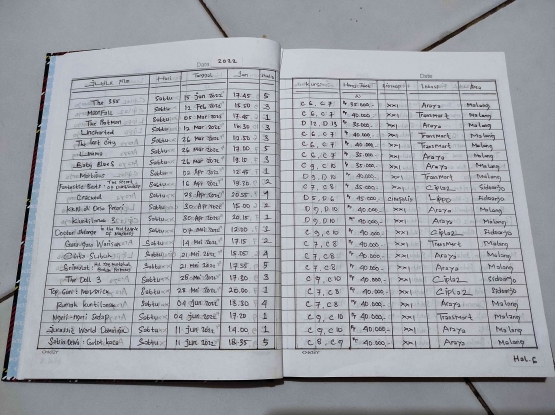 Date 2022
Hari Tanggal Jam
The 355 Sabtu 15 Jan 2022 17.45 5
Moonfall Sabtu 12 Feb 2022 15.30 3
The Batman Sabtu 05 Mar 2022 17.45 1
Uncharted Sabtu 12 Mar 2022 3
The Lost City Sabtu 26 Mar 2022 3
Sabtu 26 Mar 2022 17.00 5
Sabtu 26 Mar 2022 19.10 3
Morbius Sabtu 02 Apr 2022 12.45 1
Fantastic Beasts: The Secret of Dumbledore Sabtu 16 Apr 2022 2
Sabtu 4
Kukira Kau Rumah Sabtu 30 Apr 2022 15.00 2
Kuntilanak 3 Sabtu 30 Apr 2022 20.15 1
Doctor Strange in the Multiverse of Madness Sabtu 07 Mei 2022 12.20 1
Gara-gara Warisan Sabtu 14 Mei 2022 17.15 2
Sabtu 21 Mei 2022 4
Srimulat: Sabtu 21 Mei 2022 17.35 5
The Doll 3 Sabtu 28 Mei 2022 17.30 3
Top Gun: Maverick Sabtu 28 Mei 2022 20.00 1
Rumah Kuntilanak Sabtu 04 Jun 2022 18.30 4
Ngeri-ngeri Sedap Sabtu 04 Jun 2022 17.20 1
Jurassic World Dominion Sabtu 11 Jun 2022 14.00 1
Satria Dewa: Gatot Kaca Sabtu 11 Jun 2022 18.35 5
Date
Kursi Bioskop Tempat Kota
C 6, C 7 Rp 35.000,- XXI Araya Malang
C 6, C 7 Rp 40.000,- XXI Transmart Malang
D 12, D 13 Rp 35.000,- XXI Araya Malang
C 6, C 7 Rp 40.000,- XXI Transmart Malang
C 6, C 7 Rp 40.000,- XXI Transmart Malang
C 6, C 7 Rp 35.000,- XXI Araya Malang
C 9, C 10 Rp 35.000,- XXI Araya Malang
D 9, D 10 Rp 40.000,- XXI Transmart Malang
C 7, C 8 Rp 35.000,- XXI Ciplaz Sidoarjo
D 5, D 6 Rp 45.000,- Cinepolis Lippo Sidoarjo
D 9, D 10 Rp 40.000,- XXI Araya Malang
D 9, D 10 Rp 40.000,- XXI Araya Malang
C 9, C 10 Rp 40.000,- XXI Ciplaz Sidoarjo
C 7, C 8 Rp 40.000,- XXI Transmart Malang
C 7, C 8 Rp 40.000,- XXI Araya Malang
C 7, C 8 Rp 40.000,- XXI Araya Malang
C 9, C 10 Rp 40.000,- XXI Ciplaz Sidoarjo
C 7, C 8 Rp 40.000,- XXI Ciplaz Sidoarjo
C 7, C 8 Rp 40.000,- XXI Araya Malang
C 9, C 10 Rp 40.000,- XXI Transmart Malang
C 9, C 10 Rp 40.000,- XXI Araya Malang
C 8, C 9 Rp 40.000,- XXI Araya Malang
Hal. 6